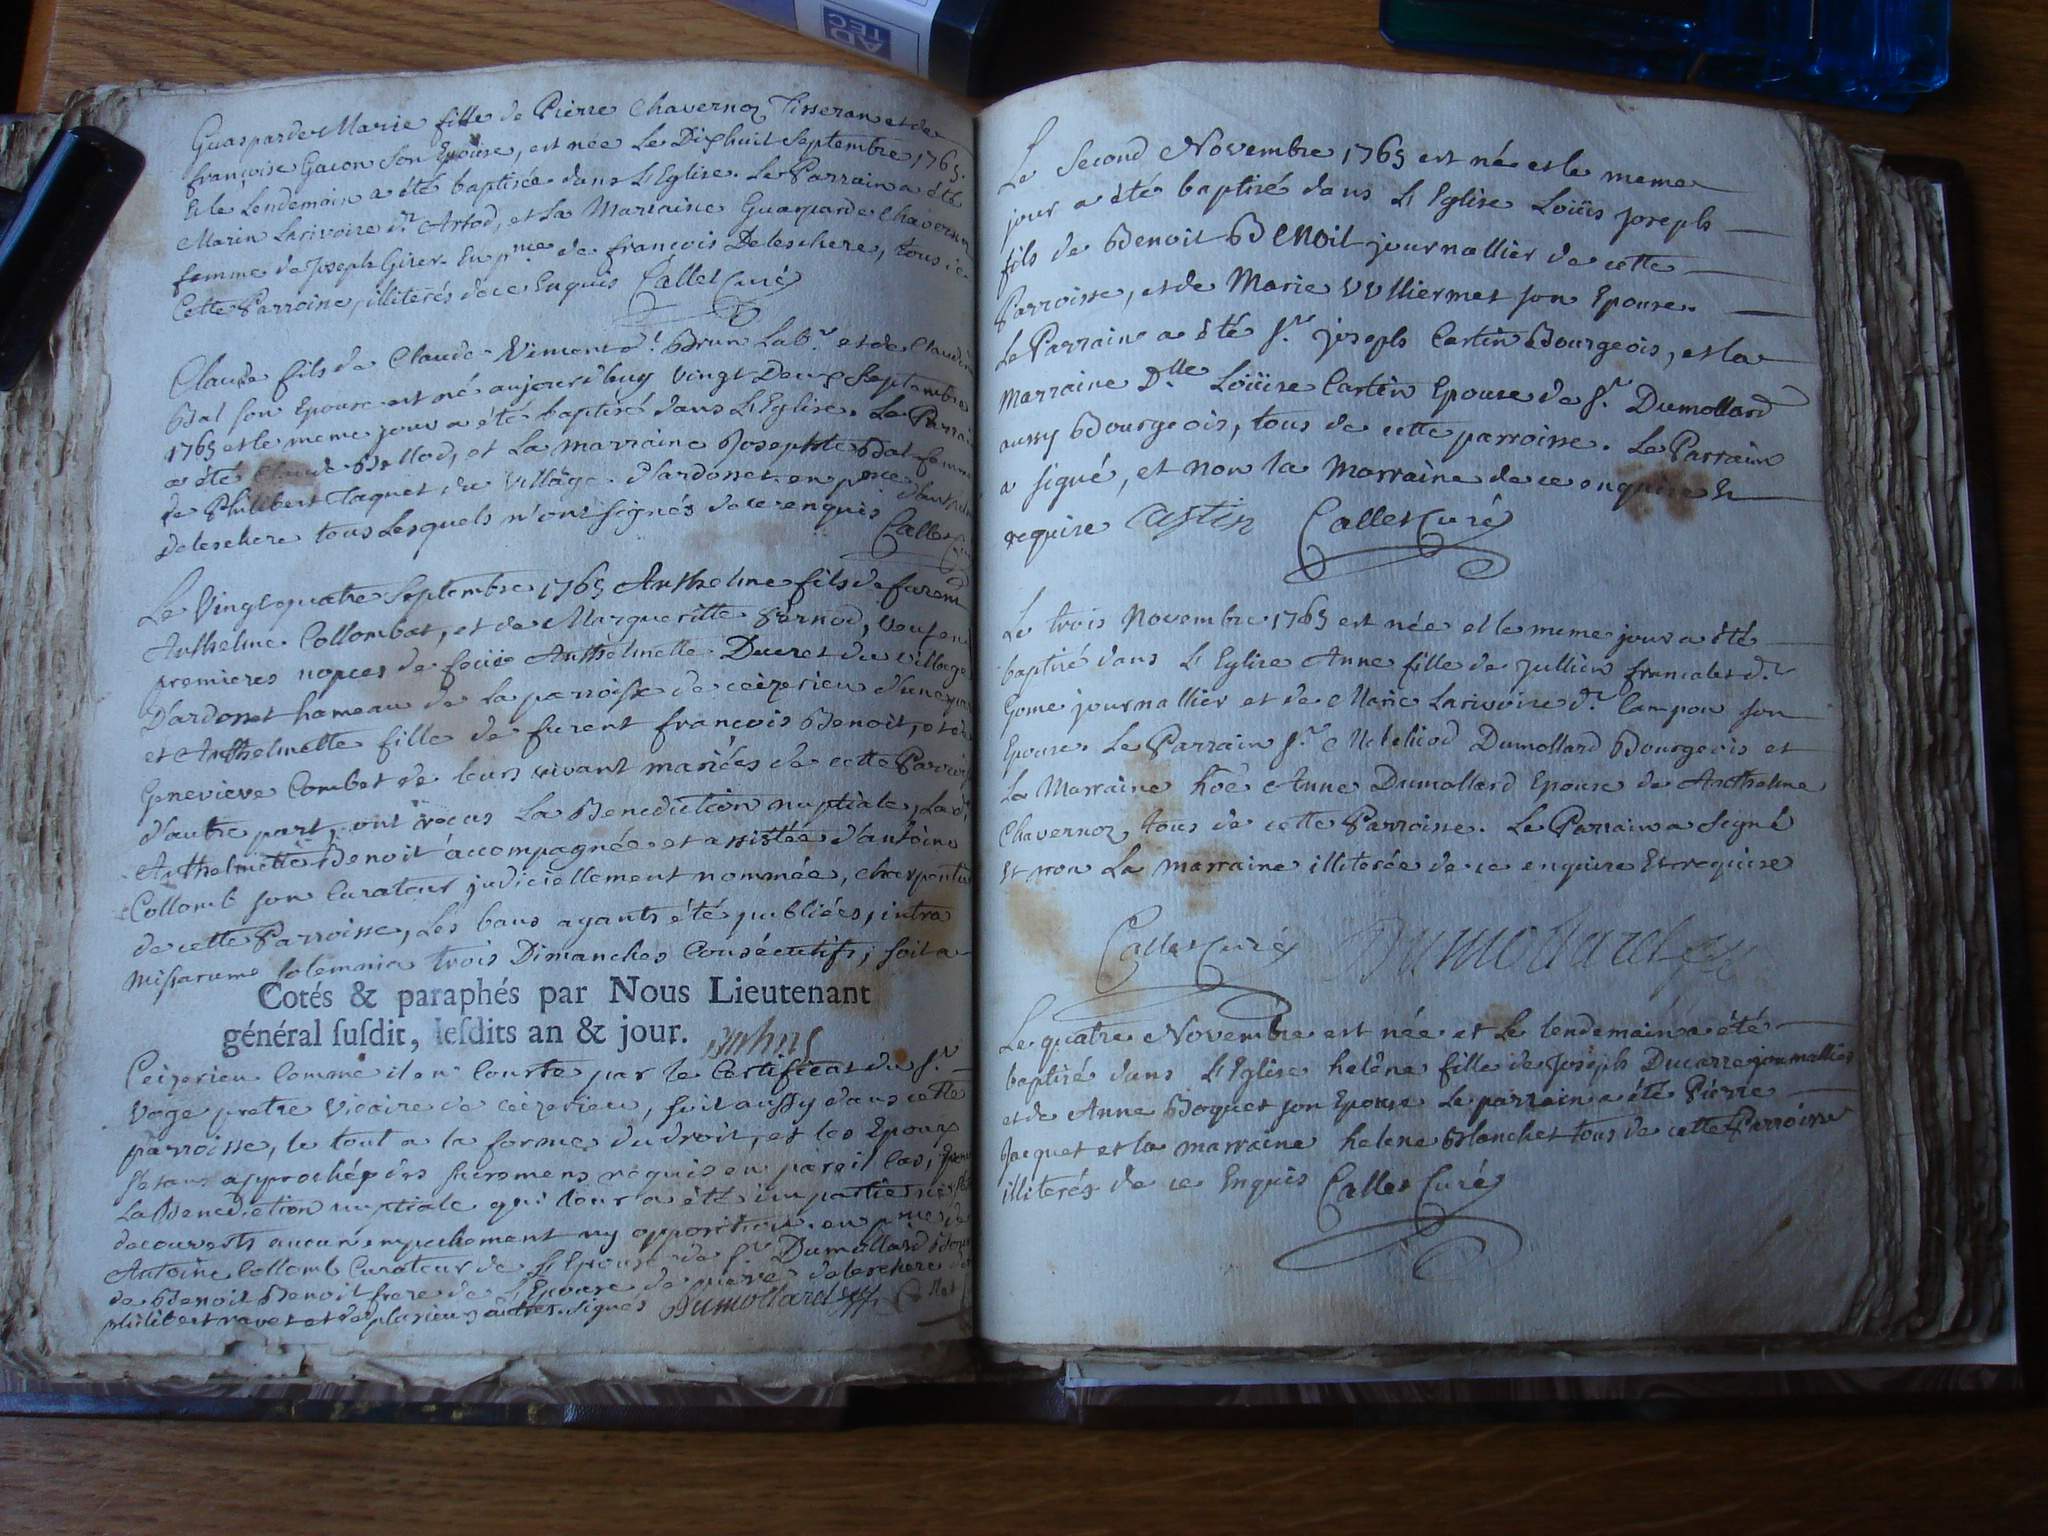 AD
TEC
Guasparde Marie fille de Pierre Chavernoz Tisseran et de
françoise Gacon son Epouse, est née Le Dixhuit Septembre 1765.
Et le Lendemain a été baptisée dans L'Eglise. Le Parrain a été
Marin Larivoire d.t Artod, et La Marraine Guasparde Chavernoz
femme de Joseph Girer. En p.nce de françois Deleschere, tous de
Cette Parroisse, illiterés de ce Enquis Callet Curé
Claude fils de Claude Vimont d.t Brun Lab.r et de Claudine
Bal son Epouse est né aujourd'huy vingt Deux Septembre
1765 et le meme jour a été baptisé dans L'Eglise. Le Parrain
a été Claude Ballod, et La marraine Josephte Bal femme
de Philibert Jaquet du Village d'ardosset en p.nce
deleschere tous Lesquels n'ont signés de ce enquis Callet
Le Vingt quatre Septembre 1765 Anthelme fils de furent
Anthelme Collombat, et de Margueritte Pernod, veuf en
premieres nopces de feüe Anthelmette Ducret du village
D'ardosset hameau de La parroisse de ceizerieu d'une part
et Anthelmette fille de furent françois Benoit, et de
Genevieve Combet de leurs vivant mariées de cette Parroisse
d'autre part, ont reçus La Benediction nuptiale, La d.e
Anthelmette Benoit accompagnée et assistée d'antoine
Collomb son Curateur judiciellement nommée, charpentier
de cette Parroisse, Les bans ayants été publiées, intra
missarum solemnia trois Dimanches Consécutifs, soit a
Cotés & paraphés par Nous Lieutenant
général ſuſdit, leſdits an & jour.
Ceizerieu Comme il en Conste par le Certificat du S.r
Voge pretre Vicaire de ceizerieu, soit aussy dans cette
parroisse, le tout a la forme du droit, et les Epoux
approchés des sacremens requis en pareil cas,
La Benediction nuptiale qui leur a été impartie
decouverts aucun empechement ny opposition. en p.nce de
Antoine Collomb Curateur de L'Epouse de S.r Dumollard
de Benoit Benoit frere de L'Epouse de pierre deleschere
philibert ravet et de plusieurs autres. signés Dumollard Callet
Le Second Novembre 1765 est né et le meme
jour a été baptisé dans L'Eglise Loüis joseph
fils de Benoit BENOIT journallier de cette
Parroisse, et de Marie VVlliermet son Epouse.
Le Parrain a été S.r joseph Castin Bourgeois, et la
marraine D.lle Loüise Castin Epouse de S.r Dumollard
aussy Bourgeois, tous de cette parroisse. Le Parrain
a signé, et non la Marraine de ce enquise Et
requise Castin Callet Curé
Le trois Novembre 1765 est née et le meme jour a été
baptisé dans L'Eglise Anne fille de Jullien francalet d.t
Gome journallier et de Marie Larivoire d.t Campou son
Epouse. Le Parrain S.r Melchiod Dumollard Bourgeois et
La Marraine hoë Anne Dumollard Epouse de Anthelme
Chavernoz, tous de cette Parroisse. Le Parrain a Signé
Et non La marraine illiterée de ce enquise Et requise
Callet Curé Dumollard
Le quatre Novembre est née et Le lendemain a été
baptisé dans L'Eglise helêne fille de Joseph Ducarre journallier
et de Anne Boquet son Epouse Le parrain a été Piérre
Jacquet et la marraine helene Blanchet tous de cette Parroisse
illiterés de ce Enquis Callet Curé